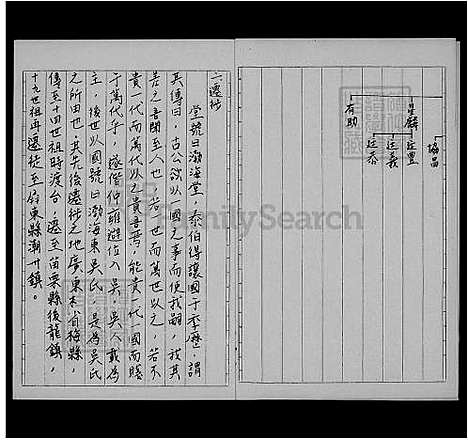 呈麟
有助
廷豐
廷義
廷恭
協昌
二、遷徙
堂號曰渤海堂，泰伯得讓國于季歷，謂
其傳曰，古公欲以一國之事而使我嗣，我其
若之吾聞至人也，若一世而萬世以之，若不
貴一代而萬代以之貴吾焉，能貴一代一國而賤
于萬代乎，遂偕仲雍避位入吳，吳人戴為
主，後世以國號曰渤海東吳氏，是為吳氏
之所由也，其先後遷徙之地廣東本省梅縣，
傳至十四世祖時渡台，遷至苗栗縣後龍鎮，
十九世祖再遷徙至屏東縣潮州鎮。
FamilySearch